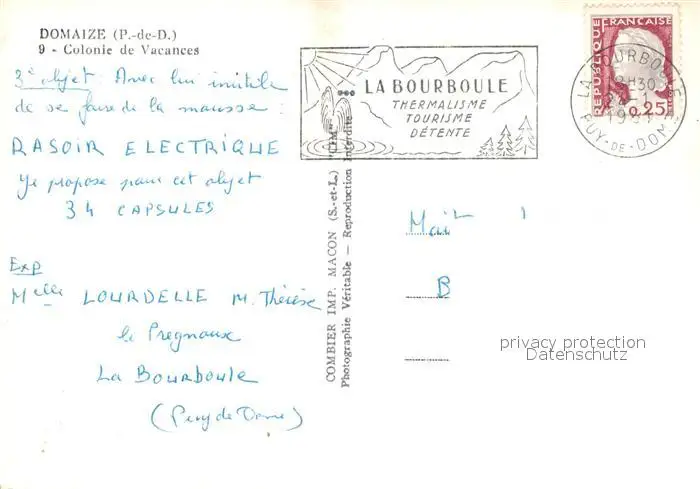 DOMAIZE (P.-de-D.)
9 - Colonie de Vacances
3e objet : Avec lui inutile
de se faire de la mousse :
RASOIR ELECTRIQUE
Je propose pour cet objet
34 CAPSULES
Exp
Melle LOURDELLE M. Thérèse
le Pregnoux
La Bourboule
(Puy de Dome)
COMBIER IMP. MACON (S.-et-L.) "CIM"
Photographie Véritable — Reproduction interdite
LA BOURBOULE
THERMALISME
TOURISME
DÉTENTE
REPUBLIQUE FRANÇAISE
0,25
LA BOURBOULE
PUY-DE-DOME
B
privacy protection
Datenschutz